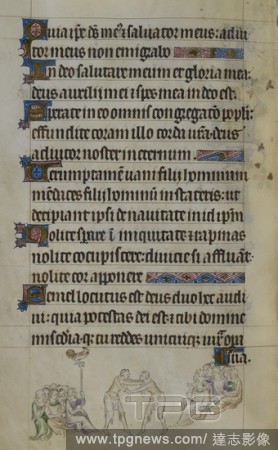 Quia ip̄e d̄s me⁹ ⁊ saluator meus: adiu
tor meus non emigrabo
In deo salutare meum et gloria mea:
deus auxilii mei ⁊ spes mea in deo est.
Sperate in eo omnis congregatō ppl̄i:
effundite coram illo corda vr̄a: deus
adiutor noster in eternum.
Verumptamen uani filij hominum
mendaces filij hominū in stateris: ut
decipiant ipsi de uanitate in id ip̄m
Nolite sperare ī iniquitate ⁊ rapinas
nolite cōcupiscere: diuicie si affluant
nolite cor apponere
Semel locutus est deus duo hec audi
ui: quia potestas dei est ⁊ tibi domine
misc̄dia: q̄ tu reddes unicuiq̄ iuxta op̄a
sua.
TPG
www.tpgnews.com / 達志影像